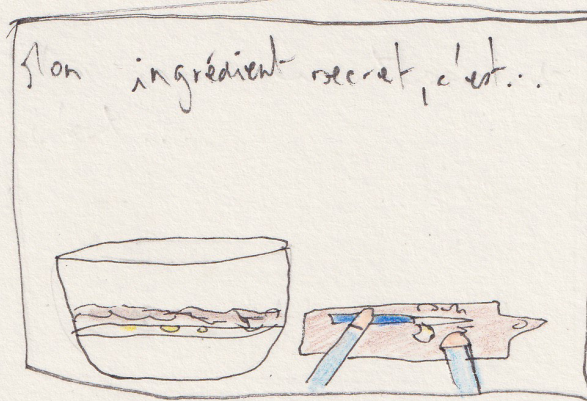 Mon ingrédient secret, c'est...